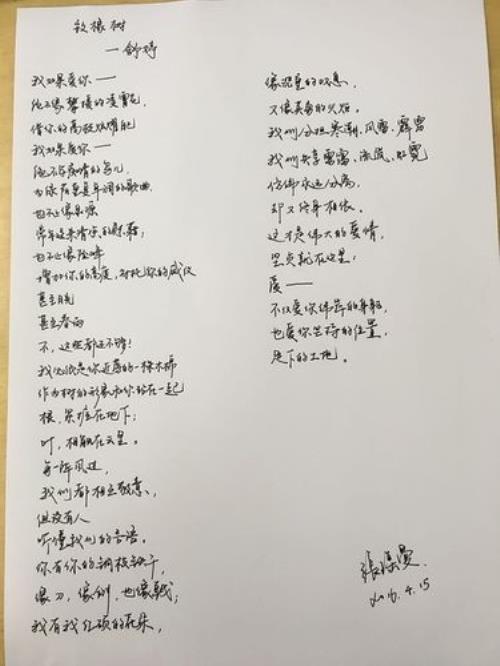 致橡树
—舒婷
我如果爱你——
绝不像攀援的凌霄花,
借你的高枝炫耀自己
我如果爱你——
绝不学痴情的鸟儿
为绿荫重复单调的歌曲
也不止像泉源
常年送来清凉的慰藉;
也不止像险峰
增加你的高度,衬托你的威仪
甚至日光
甚至春雨
不,这些都还不够!
我必须是你近旁的一株木棉
作为树的形象和你站在一起
根,紧握在地下;
叶,相触在云里。
每一阵风过,
我们都相互致意,
但没有人
听懂我们的言语。
你有你的铜枝铁干
像刀,像剑,也像戟;
我有我红硕的花朵,
像沉重的叹息,
又像英勇的火炬。
我们分担寒潮、风雷、霹雳
我们共享雾霭、流岚、虹霓
仿佛永远分离
却又终身相依。
这才是伟大的爱情,
坚贞就在这里:
爱——
不仅爱你伟岸的身躯
也爱你坚持的位置,
足下的土地。
2016.4.15